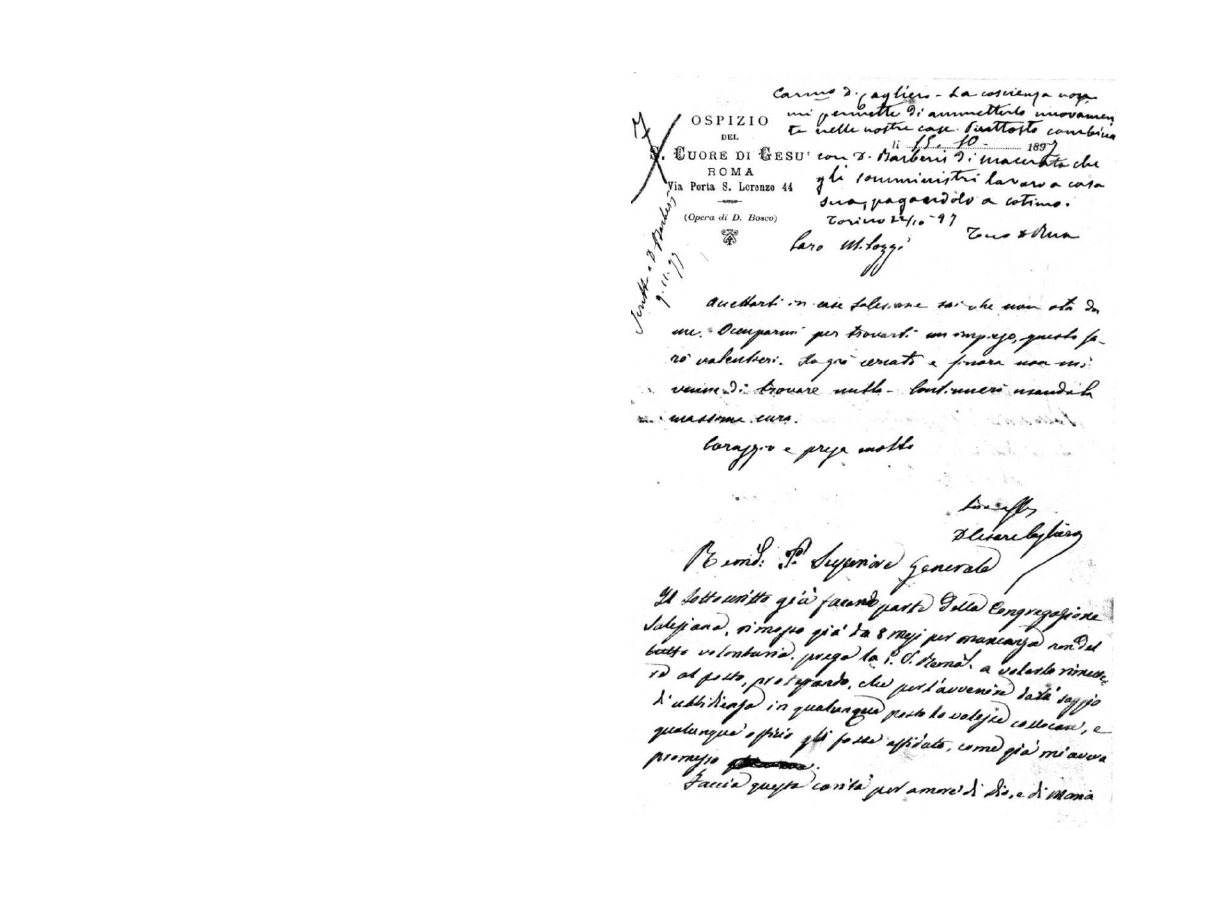 Car.mo D. Cagliero - La coscienza non
mi permette di ammetterlo nuovamen
te nelle nostre case. Piuttosto combina
OSPIZIO
DEL
S. CUORE DI GESU'
ROMA
Via Porta S. Lorenzo 44
(Opera di D. Bosco)
li 15. 10. 1897
con D. Barberis di macerata che
gli somministri lavoro a casa
sua, pagandolo a cotimo.
Torino 22/10-97
Tuo D Rua
Scritto a D Barberis
9.11.97
Caro M.
Accettarti in case Salesiane sai che non stà da
me. Occuparmi per trovarti un impiego, questo fa-
rò volentieri. Ho già cercato e finora non mi
venne di trovare nulla - Continuerò usando la
massima cura.
Coraggio e prega molto
D Cesare Cagliero
Rev.md: P. Superiore Generale
Il sottoscritto già facendo parte della Congregazione
Salesiana, rimosso già da 8 mesi per mancanza non del
tutto volontaria. prega la P. V. Revma. a volerlo rimetter
lo al posto, protestando, che per l'avvenire darà saggio
di ubbidienza in qualunque posto lo volesse collocare, e
qualunque officio gli fosse affidato, come già mi aveva
promesso
Faccia questa carità per amore di Dio, e di Maria